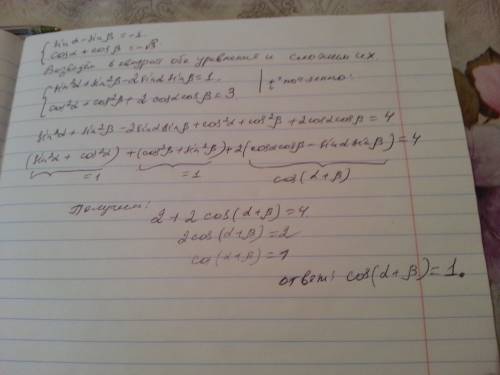 { sin α - sin β = -1.
cos α + cos β = -√3
Возведём в квадрат оба уравнения и сложим их.
{ sin²α + sin²β - 2 sin α sin β = 1.
cos²α + cos²β + 2 cos α cos β = 3. | "+" почленно:
sin²α + sin²β - 2 sin α sin β + cos²α + cos²β + 2 cos α cos β = 4
(sin²α + cos²α) + (cos²β + sin²β) + 2 (cos α cos β - sin α sin β) = 4
=1 =1 cos(α+β)
Получим:
2 + 2 cos(α+β) = 4
2 cos(α+β) = 2
cos(α+β) = 1
ответ: cos(α+β) = 1.